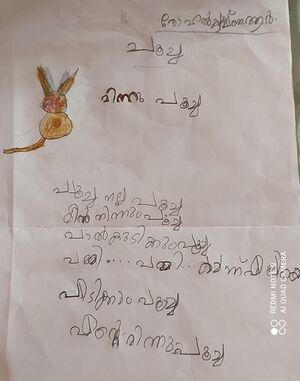 പൂച്ച
മിന്നു പൂച്ച
പൂച്ച നല്ല പൂച്ച
മീൻ തിന്നും പൂച്ച
പാൽകുടിക്കുംപൂച്ച
പമ്മി.... പമ്മി...
പിടിക്കും പൂച്ച
പൂച്ച
REDMI NOTE 9
AI QUAD CAMERA